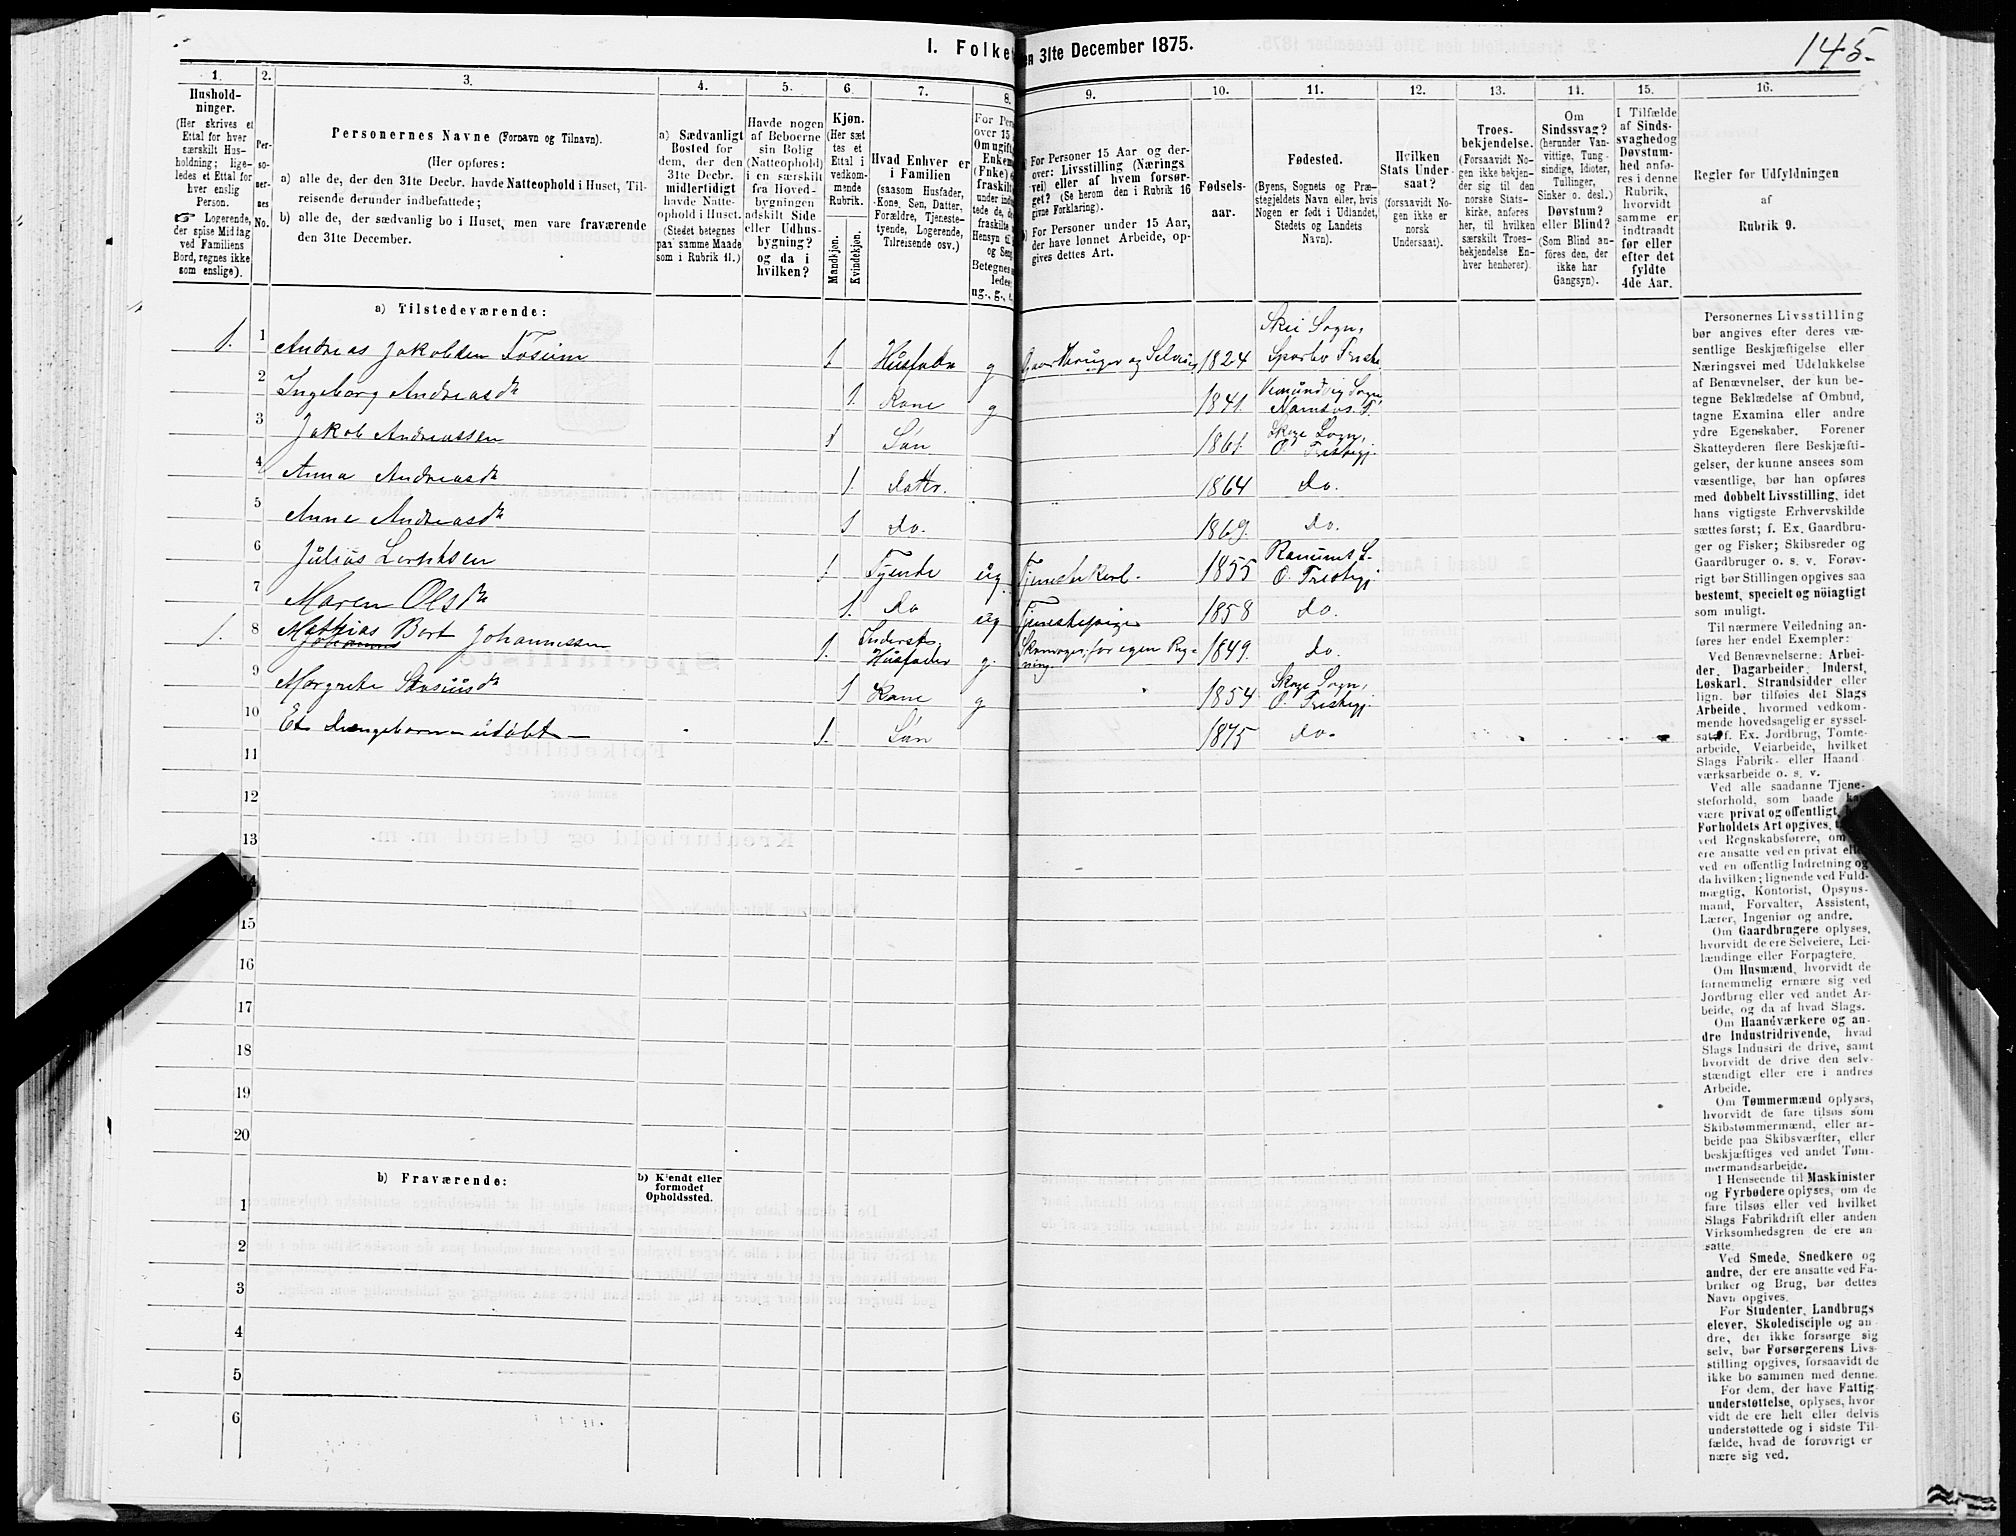 I. Folke en 31te December 1875.
145.
1. 2. 3. 4. 5. 6. 7. 8. 9. 10. 11. 12. 13. 14. 15. 16.
Hushold-
ninger.
(Her skrives et
Ettal for hver
særskilt Hus-
holdning; lige-
ledes et Ettal for
hver enslig
Person.
☞ Logerende,
der spise Middag
ved Familiens
Bord, regnes ikke
som enslige).
Per-
so-
ner-
nes
No.
Personernes Navne (Fornavn og Tilnavn).
(Her opføres:
a) alle de, der den 31te Decbr. havde Natteophold i Huset, Til-
reisende derunder indbefattede;
b) alle de, der sædvanlig bo i Huset, men vare fraværende
den 31te December.
a) Sædvanligt
Bosted for
dem, der den
31te Decbr.
midlertidigt
havde Natte-
ophold i Huset.
(Stedet betegnes
paa samme Maade
som i Rubrik 11.)
Havde nogen
af Beboerne
sin Bolig
(Natteophold)
i en særskilt
fra Hoved-
bygningen
adskilt Side
eller Udhus-
bygning?
og da i
hvilken?
Kjøn.
(Her sæt
tes et
Ettal i
vedkom-
mende
Rubrik.
Mandkjøn.
Kvindekjøn.
Hvad Enhver er
i Familien
(saasom Husfader,
Kone, Søn, Datter,
Forældre, Tjeneste-
tyende, Logerende,
Tilreisende osv.)
For Pers
over 15
Om ugift
Enkem
(Enke) e
fraskilt
under indt
tede de, d
fraskilte
Hensyn ti
og Seng
Betegnes
ledes
ug., g., e
For Personer 15 Aar og der-
over: Livsstilling (Nærings
vei) eller af hvem forsør-
get? (Se herom den i Rubrik 16
givne Forklaring).
For Personer under 15 Aar,
der have lønnet Arbeide, op-
gives dettes Art.
Fødsels-
aar.
Fødested.
(Byens, Sognets og Præ-
stegjeldets Navn eller, hvis
Nogen er født i Udlandet,
Stedets og Landets
Navn).
Hvilken
Stats Under-
saat?
(forsaavidt No-
gen ikke er
norsk
Undersaat).
Troes-
bekjendelse.
(Forsaavidt No-
gen ikke bekjen-
der sig til den
norske Stats-
kirke, anføres
her, til hvilken
særskilt Troes-
bekjendelse En-
hver henhører).
Om
Sindssvag?
(herunder Van-
vittige, Tung-
sindige, Idioter,
Tullinger,
Sinker o. desl.)
Døvstum?
eller Blind?
(Som Blind an-
føres den, der
ikke har
Gangsyn).
I Tilfælde
af Sinds-
svaghed og
Døvstum-
hed anfø-
res i denne
Rubrik,
hvorvidt
samme er
indtraadt
før eller
efter det
fyldte
4de Aar.
Regler for Udfyldningen
af
Rubrik 9.
a) Tilstedeværende:
1. 1 Andreas Jakobsen Fosum 1 Husfader g Gaardbruger og Selveier 1824 Skei Sogn, Sparbo
2 Ingeborg Andreasdr 1. Kone g 1841. Vemundvig Sogn, Namsos P.
3 Jakob Andreassen 1 Søn 1861. Skage Sogn, O.
4 Anna Andreasdr 1. Datter. 1864 do.
5 Anne Andreasdr 1 do. 1869. do.
6 Julius 1. Tyende ug. Tjenestekarl. 1855 Ranums S. O.
7 Maren Olsdr 1. do ug Tjenestepige 1858 do.
1. 8 Mathias Bort Johannessen 1. Inderst Husfader g. for egen Reg-
ning. 1849. do.
9 Margrete 1 Kone g 1854 Skage Sogn, O.
10 Et Drengebarn - udøbt - 1. Søn 1875 do.
11
12
13
14
15
16
17
18
19
20
b) Fraværende:
b) Kjendt eller
formodet
Opholdssted.
1
2
3
4
5
6
Personernes Livsstilling
bør angives efter deres væ-
sentlige Beskjæftigelse eller
Næringsvei med Udelukkelse
af Benævnelser, der kun be-
tegne Beklædelse af Ombud,
tagne Examina eller andre
ydre Egenskaber. Forener
Skatteyderen flere Beskjæfti-
gelser, der kunne ansees som
væsentlige, bør han opføres
med dobbelt Livsstilling, idet
hans vigtigste Erhvervskilde
sættes først; f. Ex. Gaardbru-
ger og Fisker; Skibsreder og
Gaardbruger o. s. v. Forøv-
rigt bør Stillingen opgives saa
bestemt, specielt og nöiagtigt
som muligt.
Til nærmere Veiledning an-
føres her endel Exempler:
Ved Benævnelserne: Arbei-
der, Dagarbeider, Inderst,
Løskarl, Strandsidder eller
lign. bør tilføies det Slags
Arbeide, hvormed vedkom-
mende hovedsagelig er syssel-
sat; f. Ex. Jordbrug, Tomte-
arbeide, Veiarbeide, hvilket
Slags Fabrik- eller Haand-
værksarbeide o. s. v.
Ved alle saadanne Tjene-
steforhold, som baade ka
være privat og offentligt,
Forholdets Art opgives,
ved Regnskabsførere, om
ere ansatte ved en privat elle
ved en offentlig Indretning og
da hvilken; lignende ved Fuld-
mægtig, Kontorist, Opsyns-
mand, Forvalter, Assistent,
Lærer, Ingeniør og andre.
Om Gaardbrugere oplyses,
hvorvidt de ere Selveiere, Lei-
lændinge eller Forpagtere.
Om Husmænd, hvorvidt de
fornemmelig ernære sig ved
Jordbrug eller ved andet Ar-
beide, og da af hvad Slags.
Om Haandværkere og an-
dre Industridrivende, hvad
Slags Industri de drive, samt
hvorvidt de drive den selv-
stændigt eller ere i andres
Arbeide.
Om Tømmermænd oplyses,
hvorvidt de fare tilsøs som
Skibstømmermænd, eller ar-
beide paa Skibsværfter, eller
beskjæftiges ved andet Tøm-
mermandsarbeide.
I Henseende til Maskinister
og Fyrbødere oplyses, om de
fare tilsøs eller ved hvilket
Slags Fabrikdrift eller anden
Virksomhedsgren de ere an-
satte.
Ved Smede, Snedkere og
andre, der ere ansatte ved Fa-
briker og Brug, bør dettes
Navn opgives.
For Studenter, Landbrugs
elever, Skoledisciple og an-
dre, der ikke forsørge sig
selv, bør Forsørgerens Livs-
stilling opgives, forsaavidt de
ikke bo sammen med denne.
For dem, der have Fattig-
understøttelse, oplyses, hvor
vidt de ere helt eller delvis
understøttede og i sidste Til-
fælde, hvad de forøvrigt er
nære sig ved.